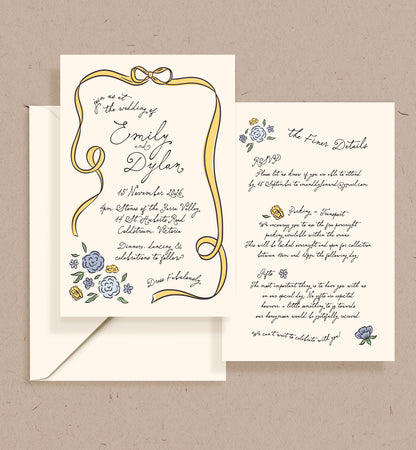 join us at
the wedding of
Emily
and
Dylan
15 November 2026
4pm Stones of the Yarra Valley
14 St Huberts Road
Coldstream, Victoria
Dinner, dancing &
celebrations to follow
Dress Fabulously
the Finer Details
RSVP
Please let us know if you are able to attend
by 15 September to
Parking + Transport
We encourage you to use the free overnight
parking available within the
This will be locked overnight and open for collection
between 10am and the following day.
Gifts
The most important thing is to have you with us
on our special day. No gifts are expected
however a little something to go towards
our honeymoon would be gratefully received
We can't wait to celebrate with you!